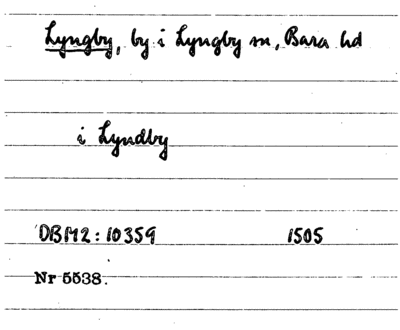 Lyngby, by i Lyngby sn, Bara hd
i Lyndby
DBM2: 10359 1505
Nr 5538.